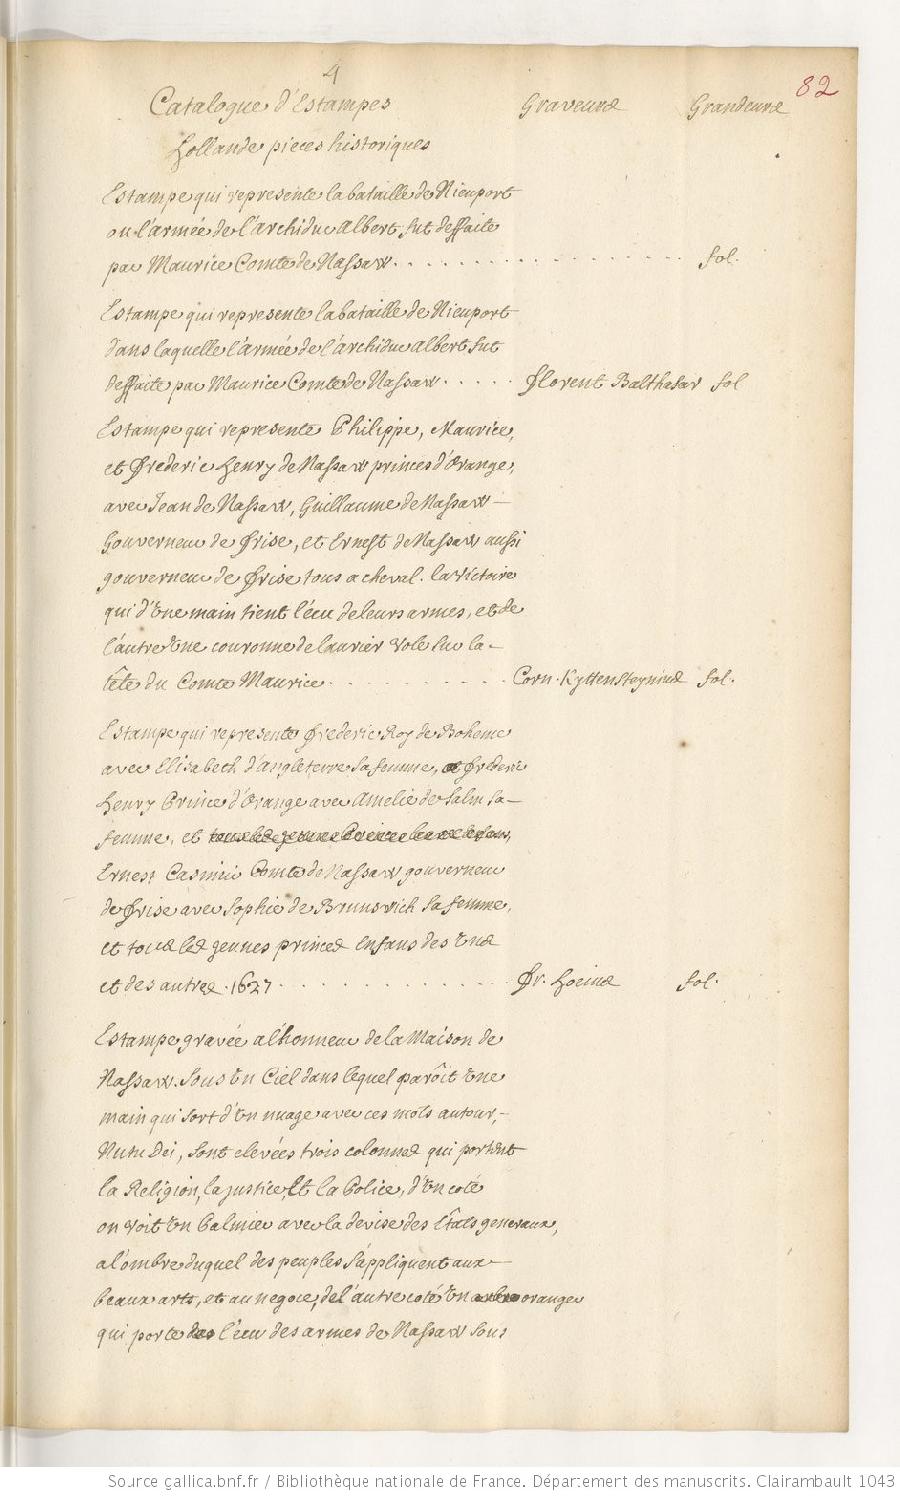 4
82
Catalogue d'Estampes Graveurs Grandeurs
Hollande pieces historiques
Estampe qui represente la bataille de Nieuport
ou l'armée de l'archiduc Albert fut deffaite
par Maurice Comte de Nassaw. . . . . . . . . . . . . . . . . fol.
Estampe qui represente la bataille de Nieuport
dans laquelle l'armée de l'archiduc Albert fut
deffaite par Maurice Comte de Nassaw. . . . . Florent Balthasar fol
Estampe qui represente Philippe, Maurice,
et Frederic Henry de Nassaw princes d'Orange,
avec Jean de Nassaw, Guillaume de Nassaw –
Gouverneur de Frise, et Ernest de Nassaw aussi
gouverneur de Frise tous a cheval. la victoire
qui d'une main tient l'écu de leurs armes, et de
l'autre une couronne de laurier vole sur la –
tête du Comte Maurice. . . . . . . . . . . Corn. Kyttensteynius fol.
Estampe qui represente Frederic Roy de Boheme
avec Elisabeth d'angleterre sa femme, Frederic
Henry Prince d'Orange avec Amelie de Salm sa –
femme, et
Ernest Casimir Comte de Nassaw gouverneur
de Frise avec Sophie de Brunswich sa femme,
et tous les jeunes princes enfans des uns
et des autres. 1627. . . . . . . . . . . . . Fr. Hoeius fol.
Estampe gravée a l'honneur de la Maison de
Nassaw. Sous un Ciel dans lequel parôit une
main qui sort d'un nuage avec ces mots autour, –
Nutu Dei, sont elevées trois colonnes qui portent
la Religion, la justice, Et la Police, d'un coté
on voit un Palmier avec la devise des Etats generaux,
a l'ombre duquel des peuples s'appliquent aux –
beaux arts, et au negoce, de l'autre coté un oranger
qui porte l'écu des armes de Nassaw sous
Source gallica.bnf.fr / Bibliothèque nationale de France. Département des manuscrits. Clairambault 1043